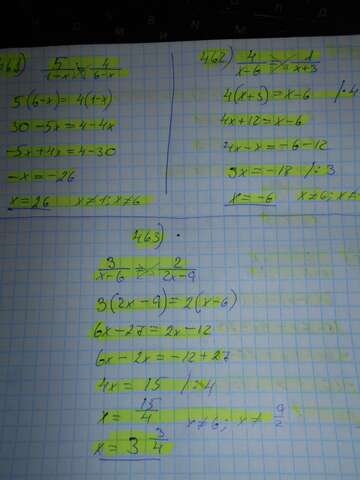 461) 5/(1-x) = 4/(6-x)
5(6-x)=4(1-x)
30-5x=4-4x
-5x+4x=4-30
-x=-26
x=26 x≠1; x≠6
462) 4/(x-6) = 1/(x+3)
4(x+3)=x-6
4x+12=x-6
4x-x=-6-12
3x=-18 /:3
x=-6 x≠6; x≠
463)
3/(x-6) = 2/(2x-9)
3(2x-9)=2(x-6)
6x-27=2x-12
6x-2x=-12+27
4x=15 /:4
x= 15/4 x≠6; x≠ 9/2
x= 3 3/4